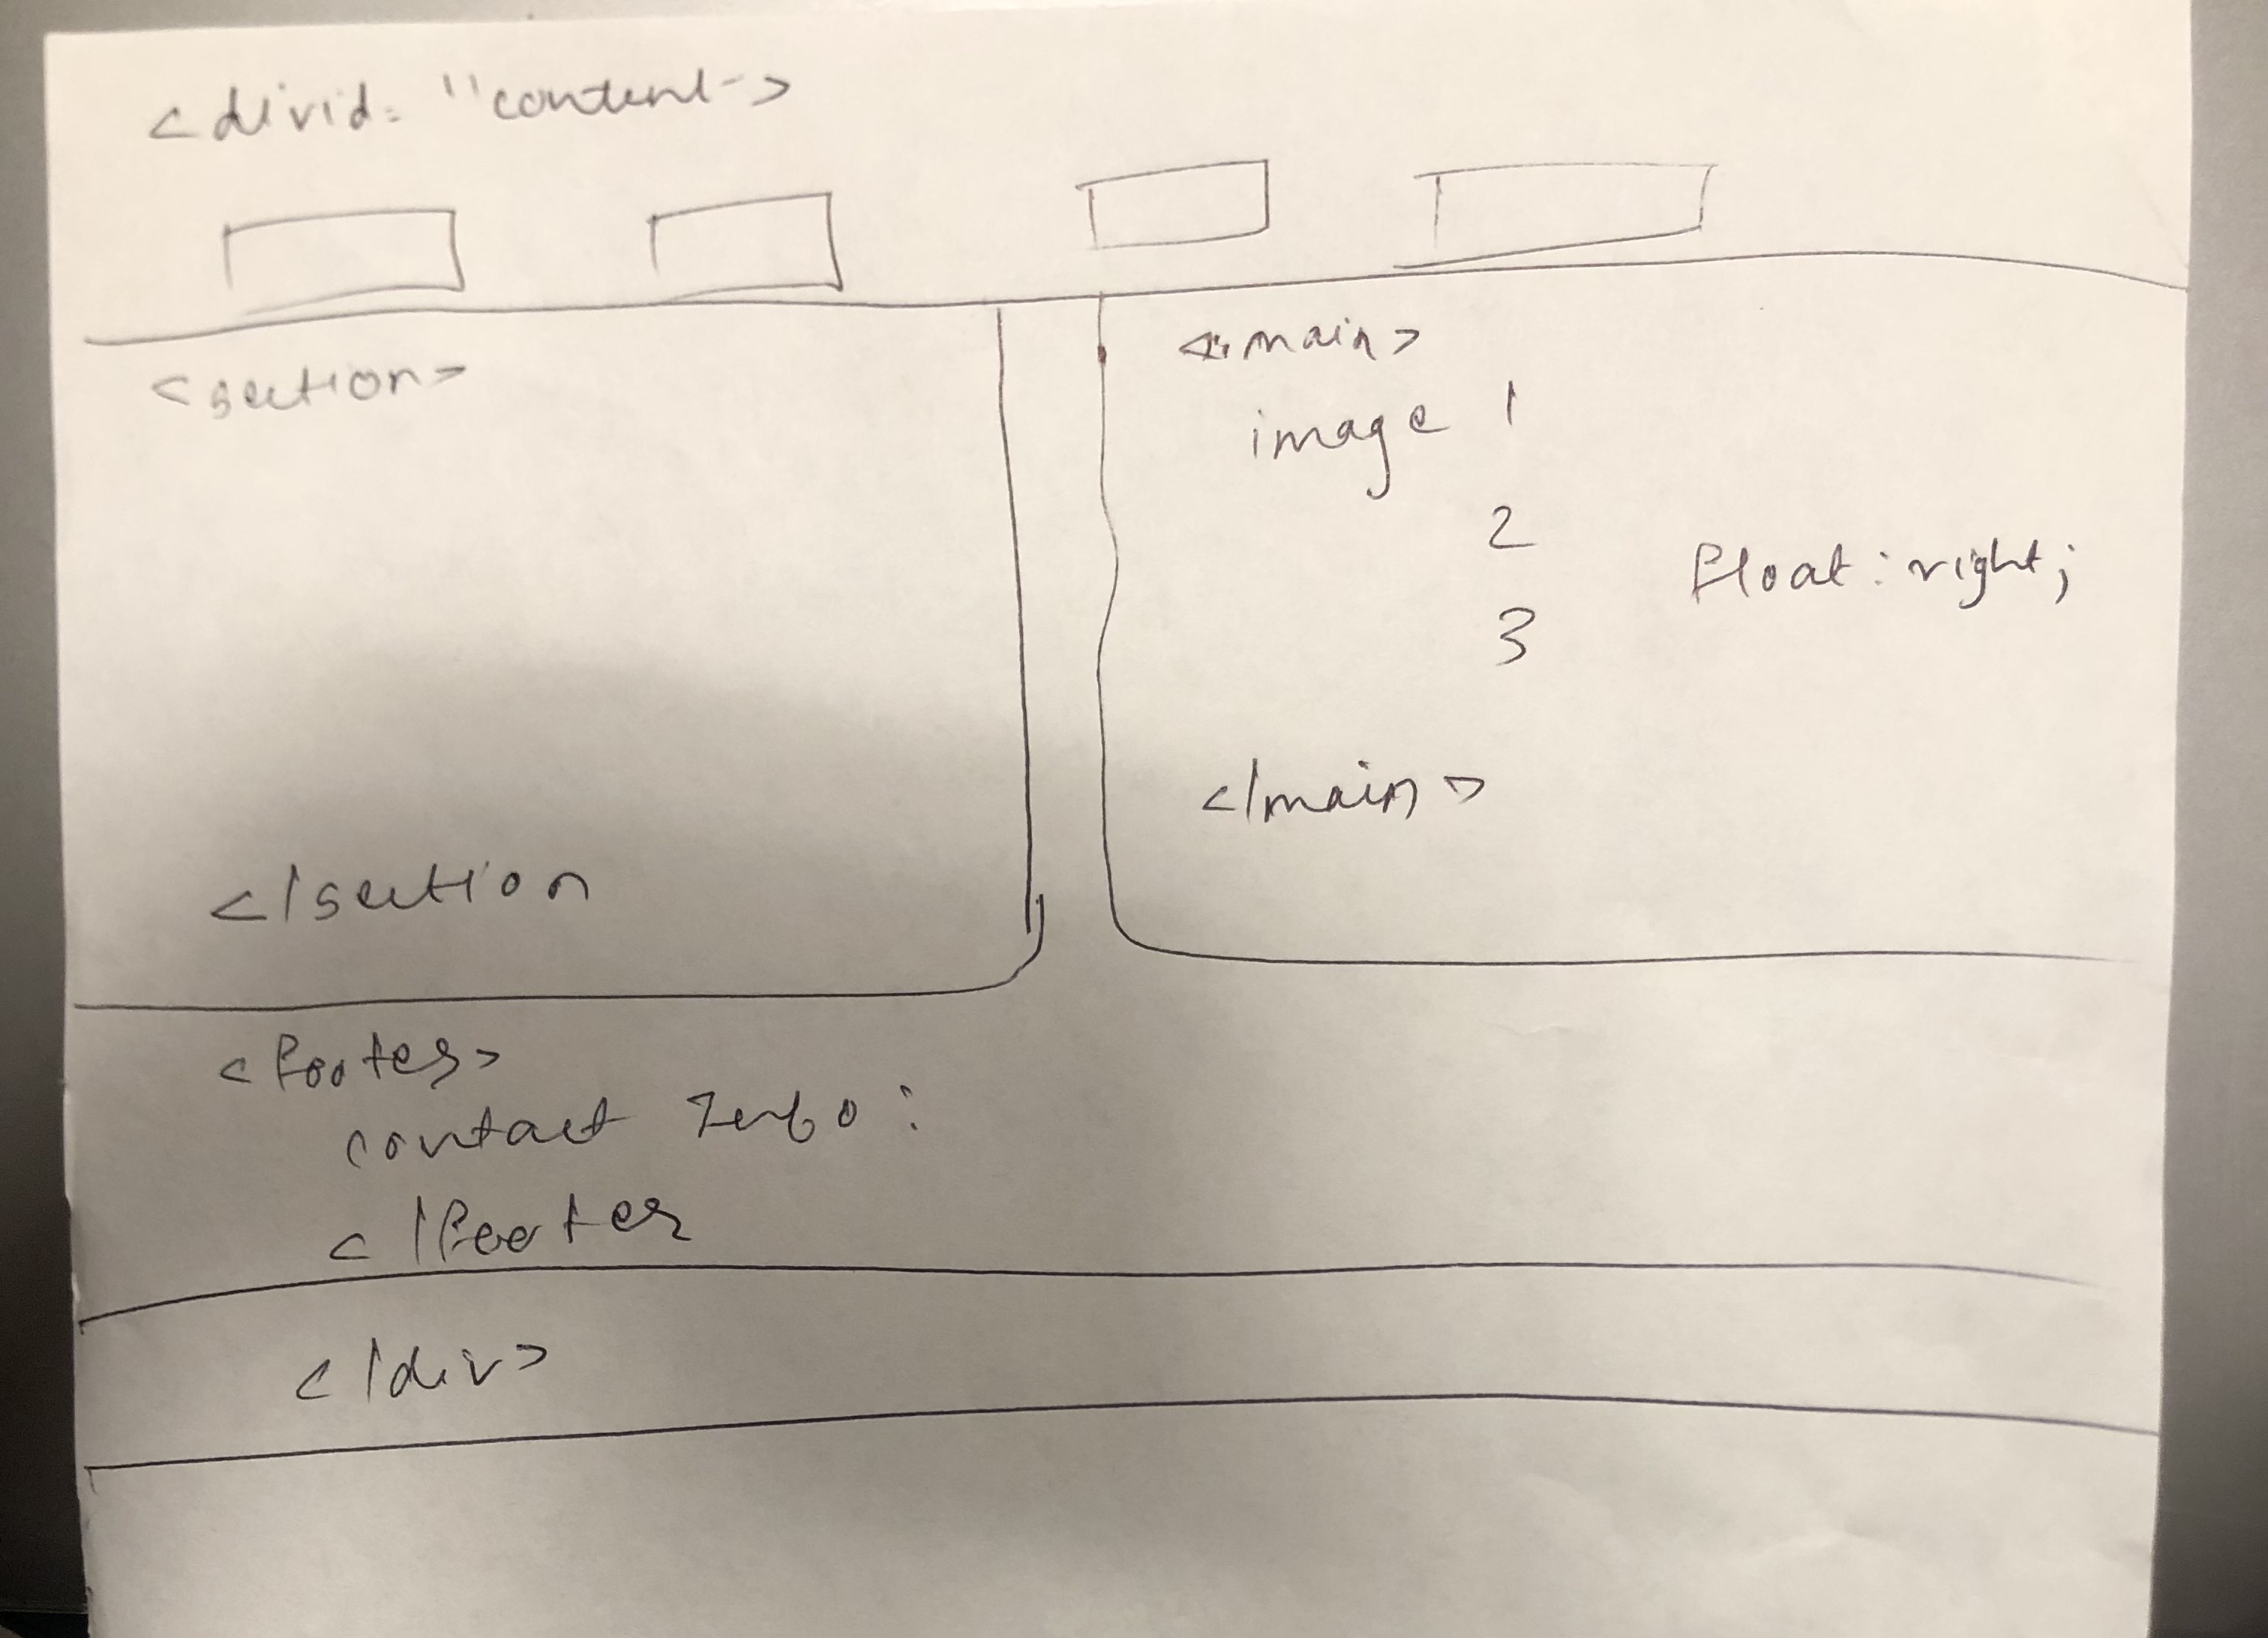 <divid= "content">
<section>
</section
<main>
image 1
2
3
float: right;
</main>
<footer>
contact Info:
</footer
</div>